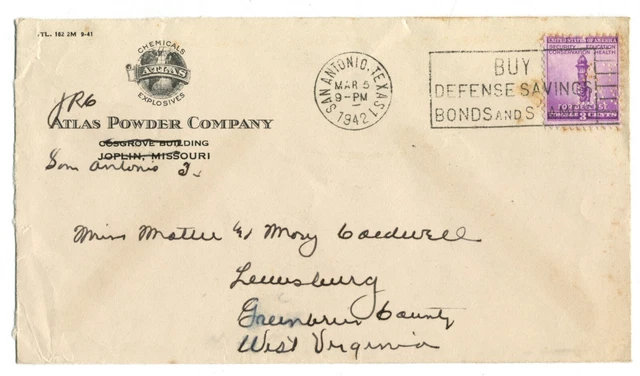 TL. 162 2M 9-41
CHEMICALS
ATLAS
EXPLOSIVES
JRG
ATLAS POWDER COMPANY
COSGROVE BUILDING
JOPLIN, MISSOURI
San Antonio T.
SAN ANTONIO, TEXAS 1
MAR 5
9-PM
1942
BUY
DEFENSE SAVINGS
BONDS AND S
UNITED STATES OF AMERICA
SECURITY EDUCATION
CONSERVATION HEALTH
FOR DEFENSE
3 CENTS 3
Miss Mattie &
Mary Caldwell
Lewisburg
Greenbrier County
West Virginia